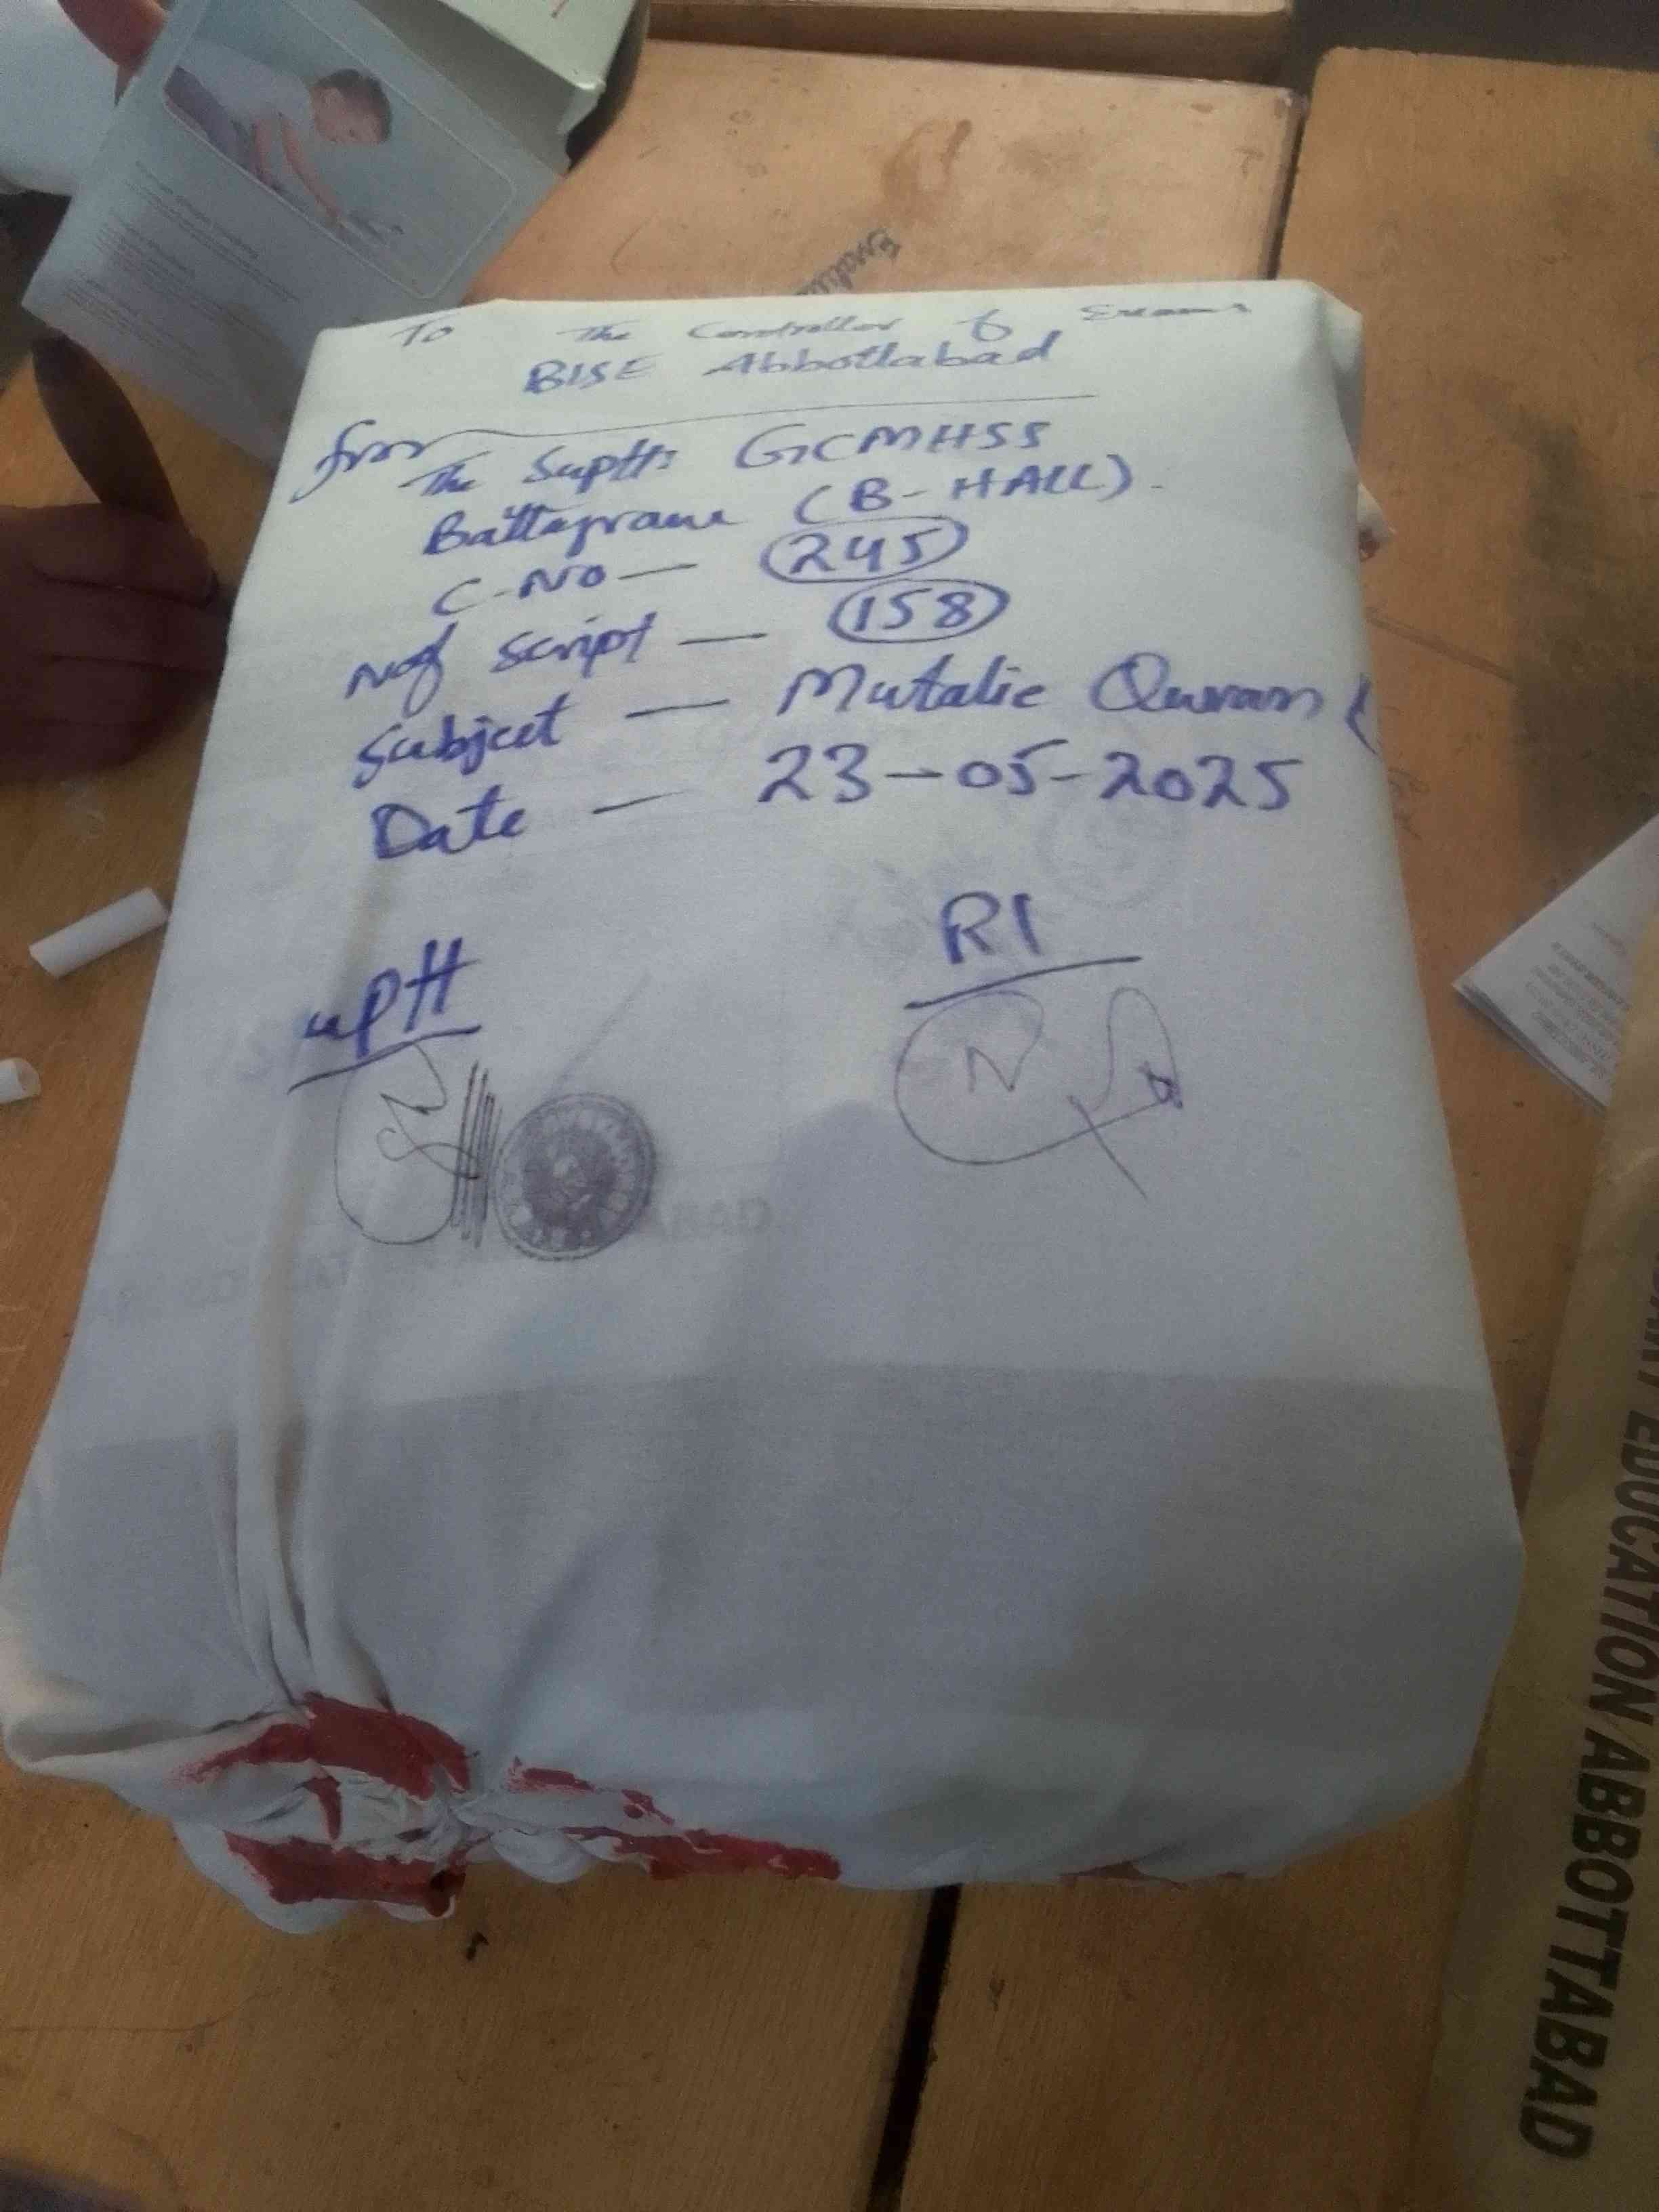 To The Controller of Exams
BISE Abbottabad
from
The Suptt: GCMHSS
Battagrame (B-HALL).
C-NO — 245
Nof script — 158
Subject — Mutalie Quran (
Date — 23-05-2025
uptt
RI
EDUCATION ABBOTTABAD